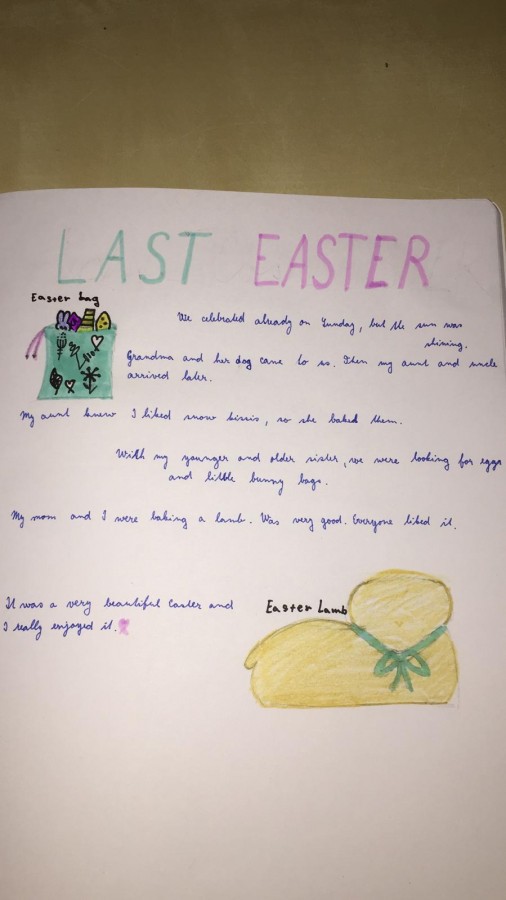 LAST EASTER
Easter bag
We celebrated already on Sunday, but the sun was
shining.
Grandma and her dog came to us. Then my aunt and uncle
arrived later.
My aunt knew I liked snow kisses, so she baked them.
With my younger and older sister, we were looking for eggs
and little bunny bags.
My mom and I were baking a lamb. Was very good. Everyone liked it.
It was a very beautiful Easter and
I really enjoyed it.
Easter Lamb